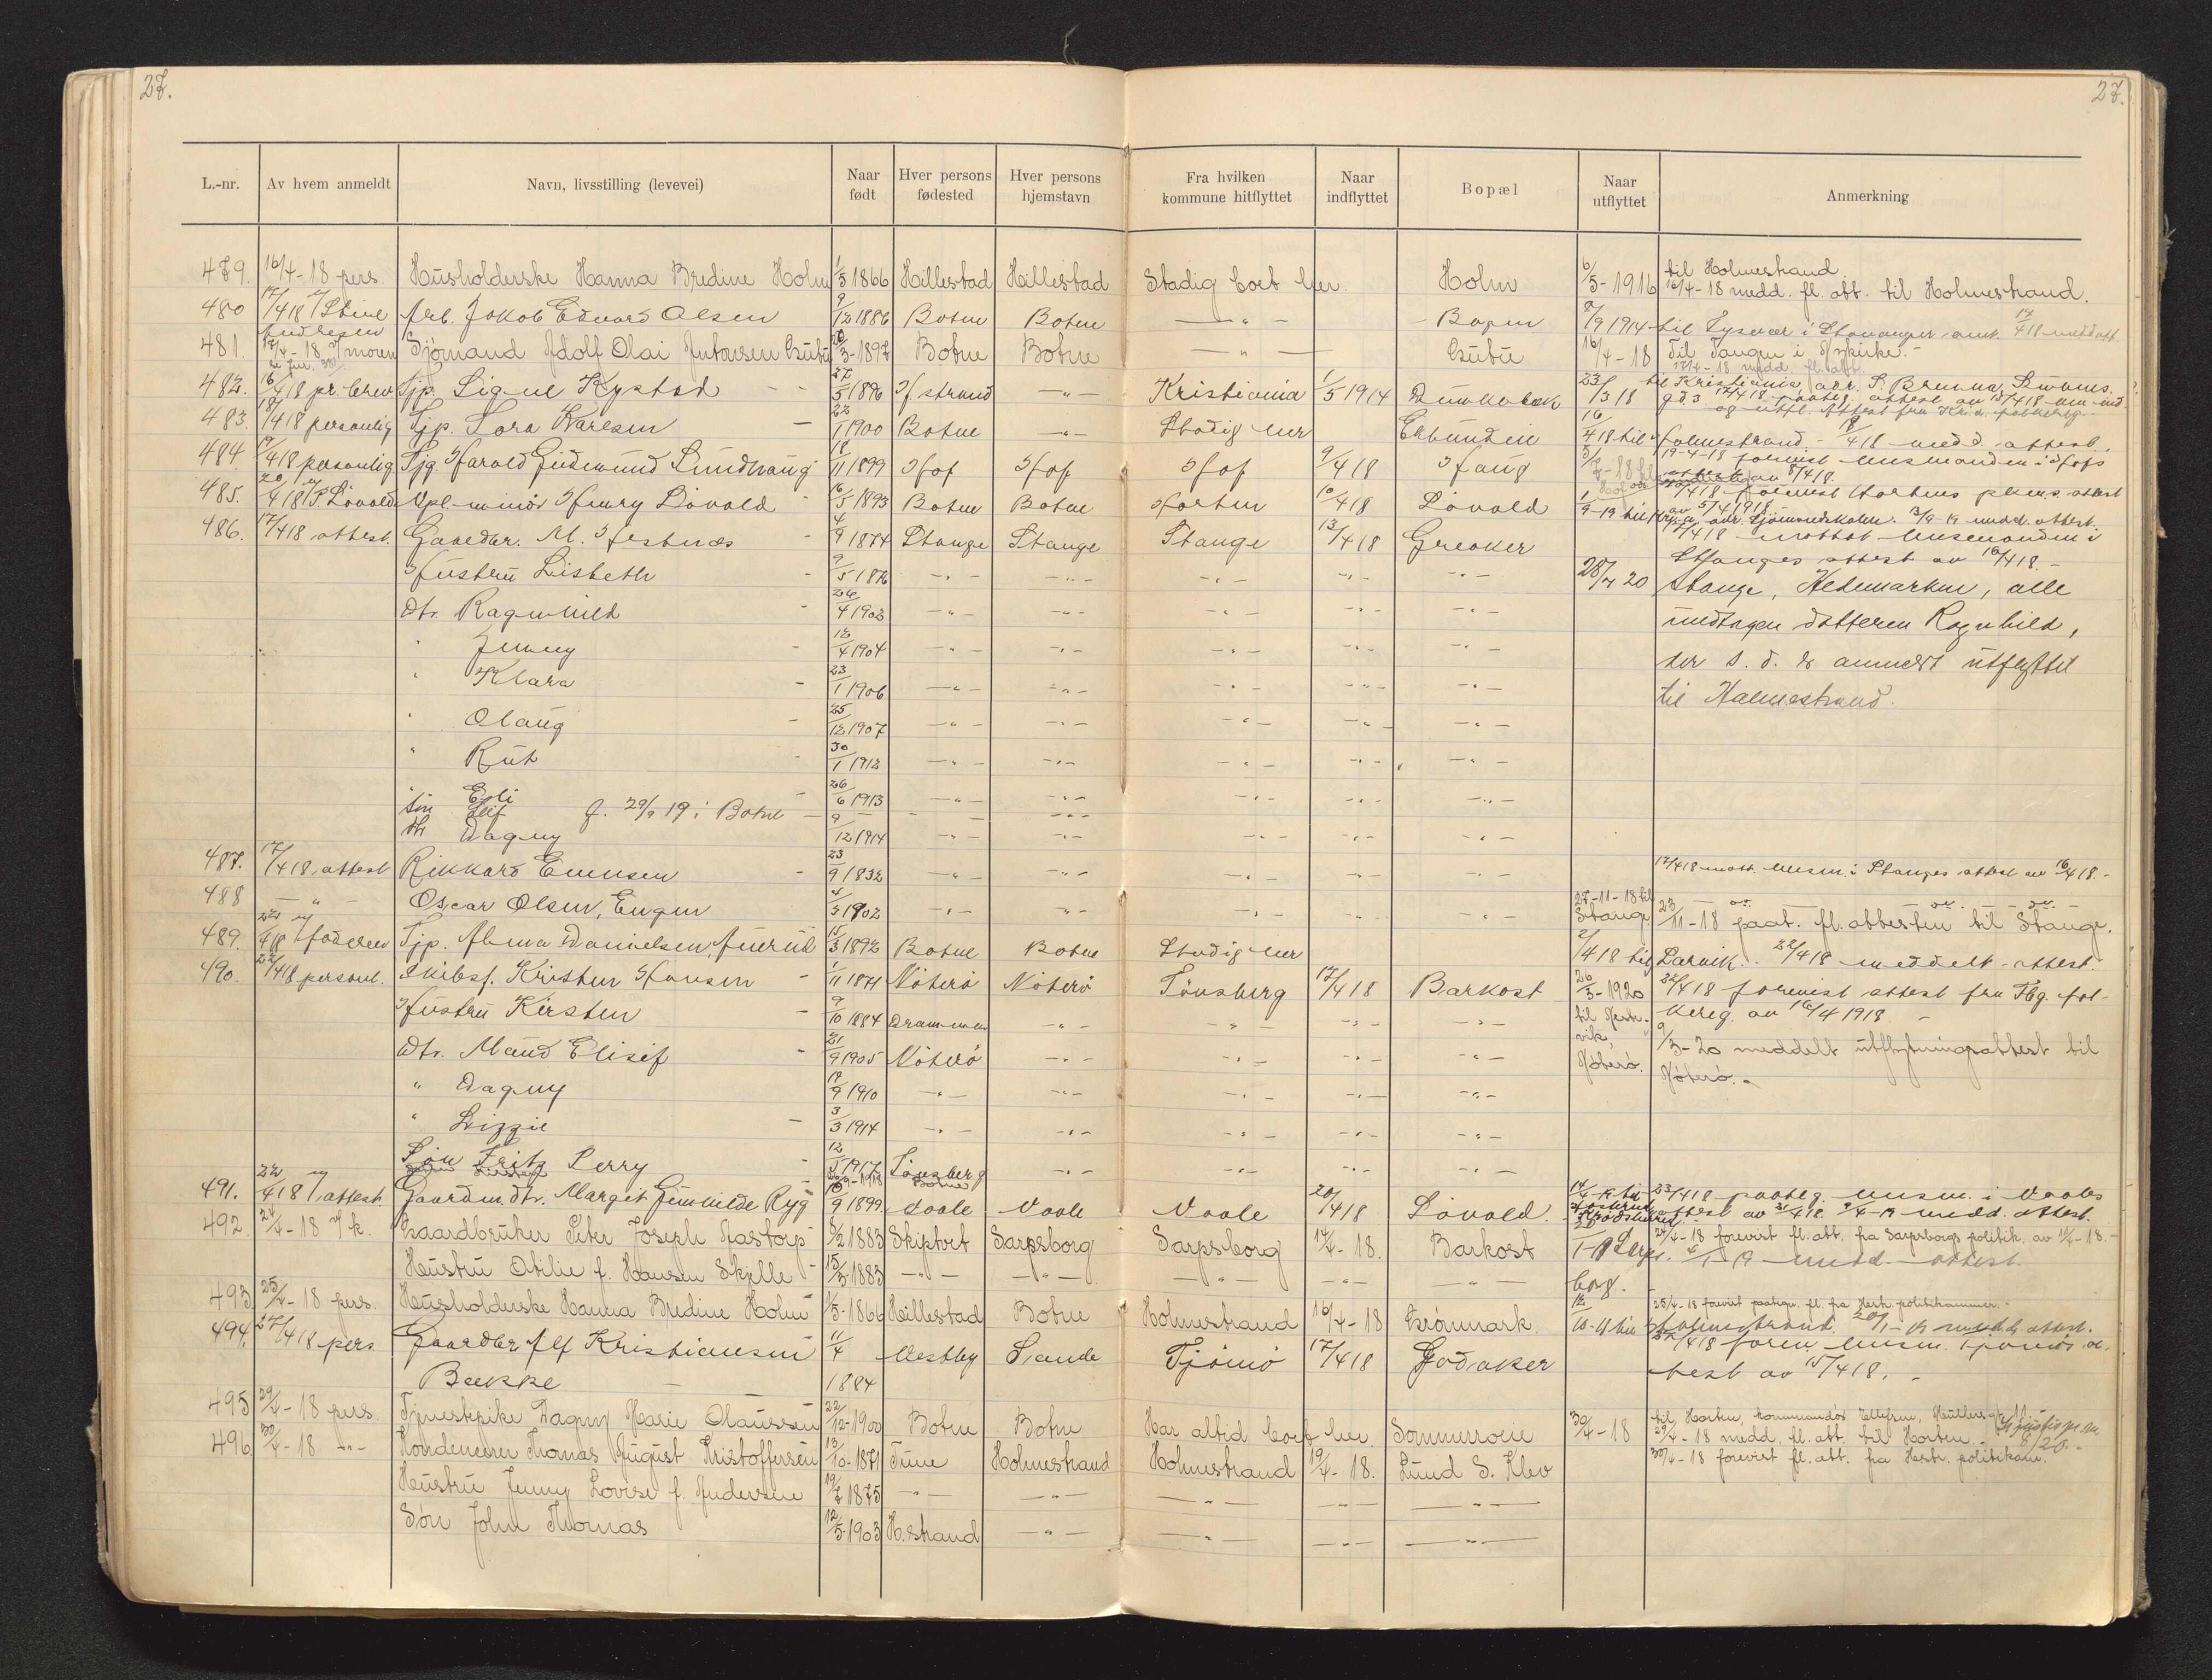 27.
27.
L.-nr. Av hvem anmeldt Navn, livsstilling (levevei) Naar født Hver persons fødested Hver persons hjemstavn Fra hvilken kommune hitflyttet Naar indflyttet Bopæl Naar utflyttet Anmerkning
479. 16/4-18 pers. Husholderske Hanna Bredine Holm 1/5 1866 Hillestad Hillestad Stadig boet her. Holm 6/5-1916 til Holmestrand.
16/4-18 medd. fl. att. til Holmestrand.
480 17/4 18 Arb. Jakob Edvard Olsen 9/12 1886 Botne Botne —"— Bogen /9 1914 til Tysvær i Stavanger amt. 17/4 18 medd att.
481. 17/4-18 moren Sjømand Adolf Olai Antonsen Gutu /3-1897 Botne Botne —"— Gutu 16/4-18 Til Tangen i Nykirke.
17/4-18 medd. fl. att.
482. 16/4 18 pr. brev Tjp. Signe Kystad 27/5 1896 Hstrand —"— Kristiania 1/5 1914 23/3 18 til Kristiania adr.
483. 18/4 18 personlig Tjp. Tora Karlsen 22/1 1900 Botne —"— Stadig her 16/4 18 til Holmestrand. - 18/4 18 medd. attest.
484 19/4 18 personlig Tjg. Harald Gudmund Lundhaug 18/11 1899 Hof Hof Hof 9/4 18 Haug 19-4-18 forevist lensmanden i Hofs
attest av 8/4 18.
485. 20/4 18 P. Løvald Henry Løvald 16/5 1893 Botne Botne Horten 10/4 18 Løvald 1/9-19 til
av 5/4 1918. adr. Sjømandskolen. medd. attest.
486. 17/4 18 attest. Gaardbr. M. Hestnæs 4/9 1874 Stange Stange Stange 13/4 18 Greaker 17/4 18 mottat lensmanden i
Stanges attest av 16/4 18.
Hustru Lisbeth 9/5 1876 —"— —"— —"— —"— —"— 28/4 20 Stange, Hedemarken, alle
dtr. Ragnhild 26/4 1902 —"— —"— —"— —"— —"— undtagen datteren Ragnhild,
" Jenny 12/4 1904 —"— —"— —"— —"— —"— der s. d. er anmeldt utflyttet
" Klara 23/1 1906 —"— —"— —"— —"— —"— til Holmestrand.
" Olaug 25/12 1907 —"— —"— —"— —"— —"—
" Rut 30/1 1912 —"— —"— —"— —"— —"—
" Esli 26/6 1913 —"— —"— —"— —"— —"—
Søn Leif f. 29/9 19 i Botne — " — —"—
dtr Dagny 9/12 1914 —"— —"— —"— —"— —"—
487. 17/4 18 attest Rikkard Evensen 23/9 1832 —"— —"— —"— —"— —"— 17/4 18 mott. lensm. i Stanges attest av 16/4 18.
488 —"— Oscar Olsen, Engen 4/3 1902 —"— —"— —"— —"— —"— 27-11-18 til Stange. — do. — do. —
23/11-18 paat. fl. attesten til Stange.
489. 22/4 18 faderen Tjp. Anna Danielsen, Auerud 15/3 1892 Botne Botne Stadig her 2/4 18 til Larvik. 22/4 18 meddelt attest.
490. 22/4 18 personl. Skibsf. Kristen Hansen 1/11 1871 Nøterø Nøterø Tønsberg 17/4 18 Barkost 20/3-1920 22/4 18 forevist attest fra Tbg. fol-
Hustru Kirsten 9/10 1884 Drammen —"— —"— —"— —"— kereg. av 16/4 1918 -
Dtr. Maud Elisif 21/9 1905 Nøterø —"— —"— —"— —"— Nøterø. 9/3-20 meddelt utflytningsattest til
" Dagny 19/9 1910 —"— —"— —"— —"— —"— Nøterø.
" Lizzie 3/3 1914 —"— —"— —"— —"— —"—
Søn Fritz Perry 12/5 1917 Tønsberg —"— —"— —"— —"—
491. 22/4 18 attest. Gaardm. dtr. Margit Gunhilde Ryg 10/9 1899. Vaale Vaale Vaale 20/4 18 Løvald. 23/4 18 paateg. lensm. i Vaales
attest av medd. attest.
492. 24/4-18 Gaardbruker Peter Joseph Aastorp 5/2 1883 Skiptvet Sarpsborg Sarpsborg 14/4-18. Barkost 24/4-18 forevist fl. att. fra Sarpsborgs politik.
Hustru Otilie f. Hansen Skjelle 15/3-1883 —"— —"— —"— —"— —"— borg. medd. attest.
493. 25/4-18 pers. Husholderske Hanna Bredine Holm 1/5-1866 Hillestad Botne Holmestrand 16/4-18 Grønmark. 25/4-18 forevist paategn. fl. fra Hstr. politikammer.
Holmestrand. medd. attest.
494. 27/4 18 pers. Gaardbr Alf Kristiansen 11/4 Vestby Sande Tjømø 17/4 18 Godaker 27/4 18 forev. lensm. Tjømøs at-
Bække 1884 test av 15/4 18.
495 29/4-18 pers. Tjenestepike Dagny Marie Olaussen 22/12-1900 Botne Botne Har altid boet her. Sommerroen 30/4-18 til Horten, kommandør
29/4-18 medd. fl. att. til Horten.
496. 30/4-18 —"— Kondenserer Thomas August Kristoffersen 13/10-1871 Tune Holmestrand Holmestrand 19/4-18. Lund S. Klev 30/4-18 forevist fl. att. fra Hstr. politikam.
Hustru Jenny Lovise f. Andersen 19/7 1875 —"— —"— —"— —"— —"—
Søn John Thomas 12/5-1903 H.strand —"— —"— —"— —"—